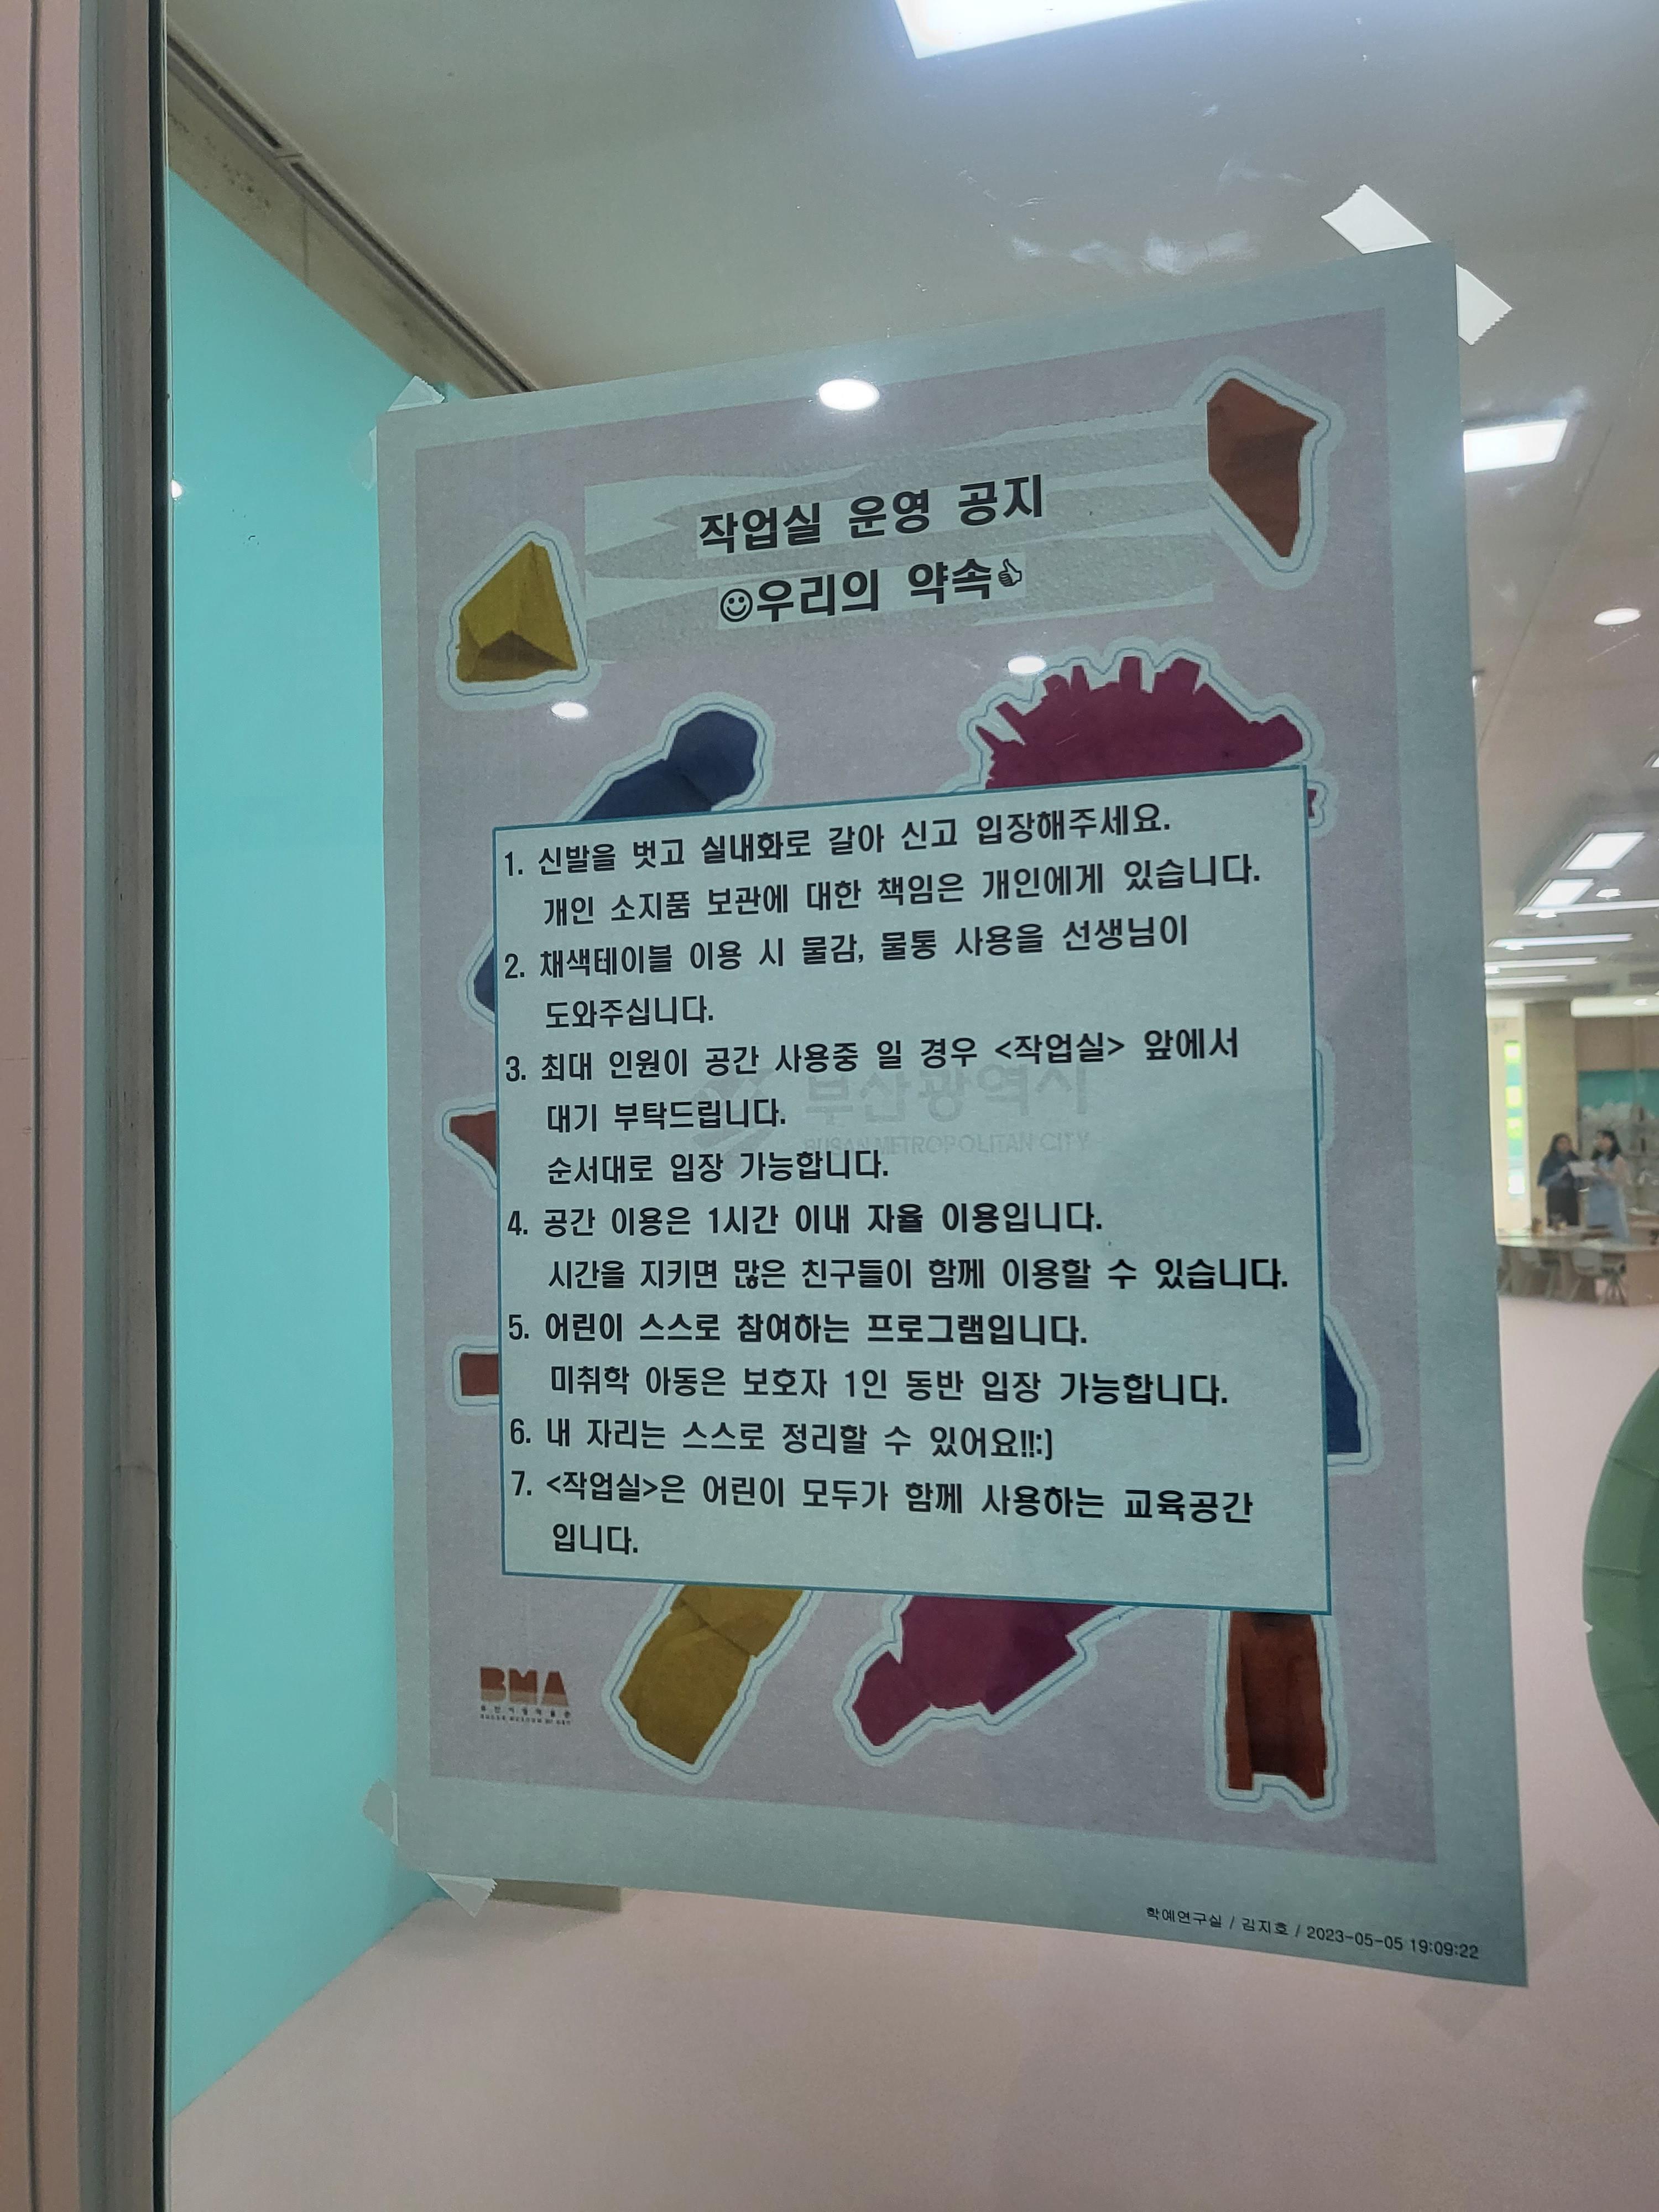 작업실 운영 공지
☺우리의 약속👍
1. 신발을 벗고 실내화로 갈아 신고 입장해주세요.
개인 소지품 보관에 대한 책임은 개인에게 있습니다.
2. 채색테이블 이용 시 물감, 물통 사용을 선생님이
도와주십니다.
3. 최대 인원이 공간 사용중 일 경우 <작업실> 앞에서
대기 부탁드립니다.
순서대로 입장 가능합니다.
부산광역시
BUSAN METROPOLITAN CITY
4. 공간 이용은 1시간 이내 자율 이용입니다.
시간을 지키면 많은 친구들이 함께 이용할 수 있습니다.
5. 어린이 스스로 참여하는 프로그램입니다.
미취학 아동은 보호자 1인 동반 입장 가능합니다.
6. 내 자리는 스스로 정리할 수 있어요!!:]
7. <작업실>은 어린이 모두가 함께 사용하는 교육공간
입니다.
BMA
부산시립미술관
BUSAN MUSEUM OF ART
학예연구실 / 김지호 / 2023-05-05 19:09:22